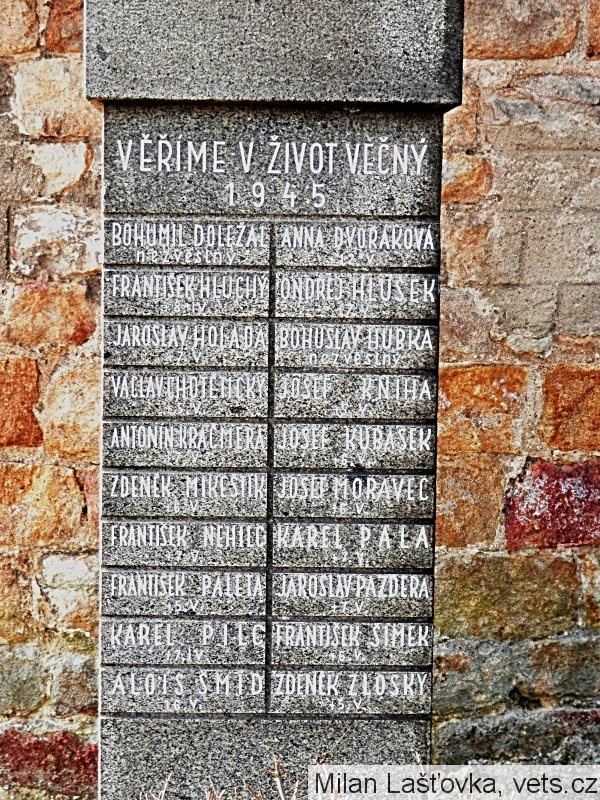 VĚŘÍME V ŽIVOT VĚČNÝ
1945
BOHUMIL DOLEŽAL ANNA DVOŘÁKOVÁ
nezvěstný
FRANTIŠEK HLUCHÝ ONDŘEJ HLŮŠEK
JAROSLAV HOLADA BOHUSLAV HUBKA
7.V. nezvěstný
VÁCLAV CHOTĚTICKÝ JOSEF KNIHA
ANTONÍN KRAČMERA JOSEF KUBÁSEK
ZDENĚK MIKEŠTÍK JOSEF MORAVEC
FRANTIŠEK NEHILC KAREL PALA
FRANTIŠEK PALETA JAROSLAV PAZDERA
+5.V. +7.V.
KAREL PILC FRANTIŠEK ŠIMEK
17.IV. +6.V.
ALOIS ŠMÍD ZDENĚK ZLOSKÝ
+5.V.
Milan Lašťovka, vets.cz